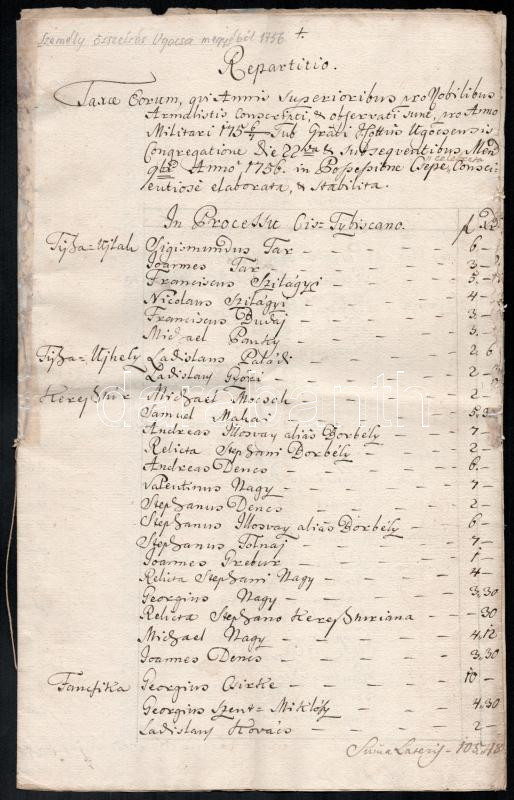 Személy összeírás Ugocsa megyéből 1756 +.
Repartitio.
Taxæ Eorum, qui Annis Superioribus pro Nobilibus
Armalistis Conscripti, & observati sunt, pro Anno
Militari 1756 Sub Gräli Cottus Ugocsensis
Congregatione die 22ta & subsequentibus Men
Anno 1756. in Possessione Csepe celebrata Consci-
entiose elaborata, & stabilita.
In Processu Cis=Tybiscano. f. xr.
Tisza=Ujlak Sigismundus Tar — 6 -
Joannes Tar — 3 -
Franciscus Szilágyi — 5 -
Nicolaus Szilágyi — 4 -
Franciscus Budaj — 3 -
Michael Panky — 3 -
Tisza=Ujhely Ladislaus Paládi — 2, 6
Ladislaus Györi — 2 -
Keresztur Michael Mocsok — 2 -
Samuel Makai — 5,3
Andreas Illosvay aliàs Borbély — 7 -
Relicta Stephani Borbély — 2 -
Andreas Dencs — 6 -
Valentinus Nagy — 7 -
Stephanus Dencs — 2 -
Stephanus Illosvay aliàs Borbély — 6 -
Stephanus Tolnaj — 7 -
Joannes Grebur — 1 -
Relicta Stephani Nagy — 4 -
Georgius Nagy — 3,30
Relicta Stephano Kereszturiana — 30
Michael Nagy — 4,12
Joannes Dencs — 3,30
Fancsika Georgius Csirke — 10 -
Georgius Szent=Miklósy — 4,30
Ladislaus Kovács — 2 -
Suma Lateris - 105,18
darabanth